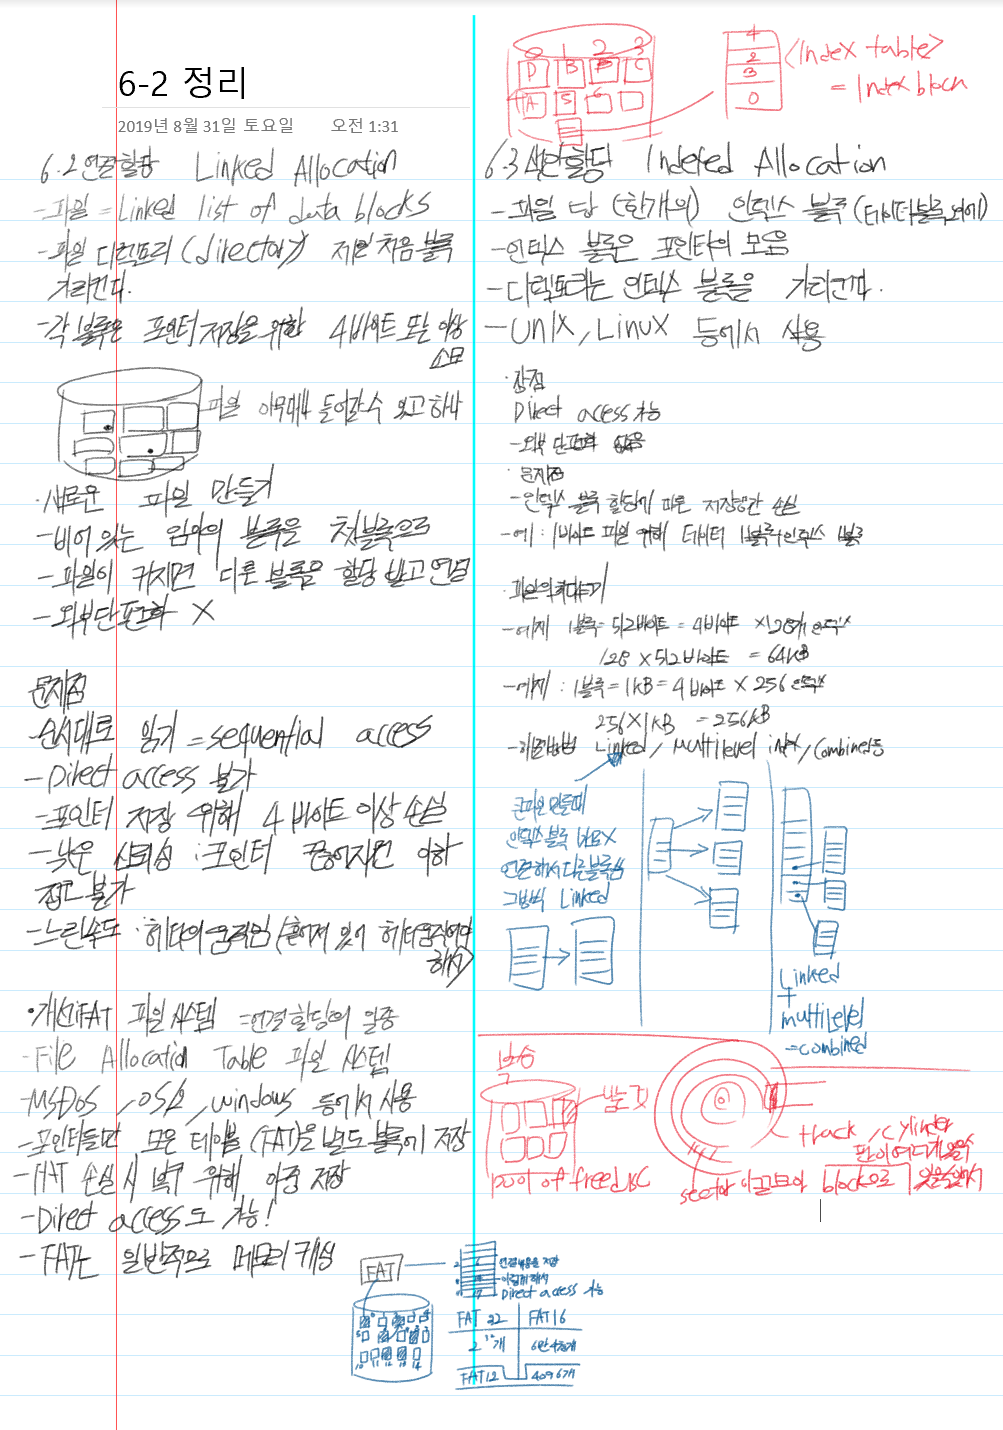 6-2 정리
2019년 8월 31일 토요일 오전 1:31
6.2 연결할당 Linked Allocation
-파일 = Linked list of data blocks
-파일 디렉토리(directory) 제일 처음 블록
가리킨다.
-각 블록은 포인터 저장을 위한 4바이트 또는 이상
소모
파일 아무데나 들어갈수 있고 하나
·새로운 파일 만들기
-비어 있는 임의의 블록을 첫블록으로
-파일이 커지면 다른 블록을 할당 받고 연결
-외부단편화 X
문제점
-순서대로 읽기 = sequential access
-Direct access 불가
-포인터 저장 위해 4 바이트 이상 손실
-낮은 신뢰성 : 포인터 끊어지면 이하
접근 불가
-느린속도 : 헤더의 움직임 (흩어져 있어 헤더움직여야
해서)
·개선:FAT 파일 시스템 =연결할당의 일종
-File Allocation Table 파일 시스템
-MSDos, OS/2, windows 등에서 사용
-포인터들만 모은 테이블 (FAT)을 별도 블록에 저장
-FAT 손실 시 복구 위해 이중 저장
-Direct access도 가능!
-FAT는 일반적으로 메모리 캐싱
FAT
Direct access 가능
FAT 32 FAT16
FAT12 4096개
0 1 2 3
D B B C
4 A 5 6
4
2
3
0
<Index table>
= Index block
6.3 색인할당 Indexed Allocation
-파일 당 (한개의) 인덱스 블록 (데이터블록 외에)
-인덱스 블록은 포인터의 모음
-디렉토리는 인덱스 블록을 가리킨다.
-Unix, Linux 등에서 사용
·장점
Direct access 가능
-외부 단편화 없음
·문제점
-인덱스 블록 할당에 따른 저장공간 손실
-예 : 1바이트 파일 위해 데이터 1블록+인덱스 1블록
·파일의 최대크기
-예제 1블록=512바이트 = 4바이트 ×128개 인덱스
128 ×512바이트 = 64KB
-예제 : 1블록=1KB=4바이트 × 256 인덱스
256×1KB =256KB
-해결방법 Linked, Multilevel index, Combined등
큰파일 만들때
인덱스 블록
연결해서 다른블록
그방식 Linked
Linked
+
multilevel
=combined
복습
빨간것
pool of free disc
track/cylinder
sector
block으로